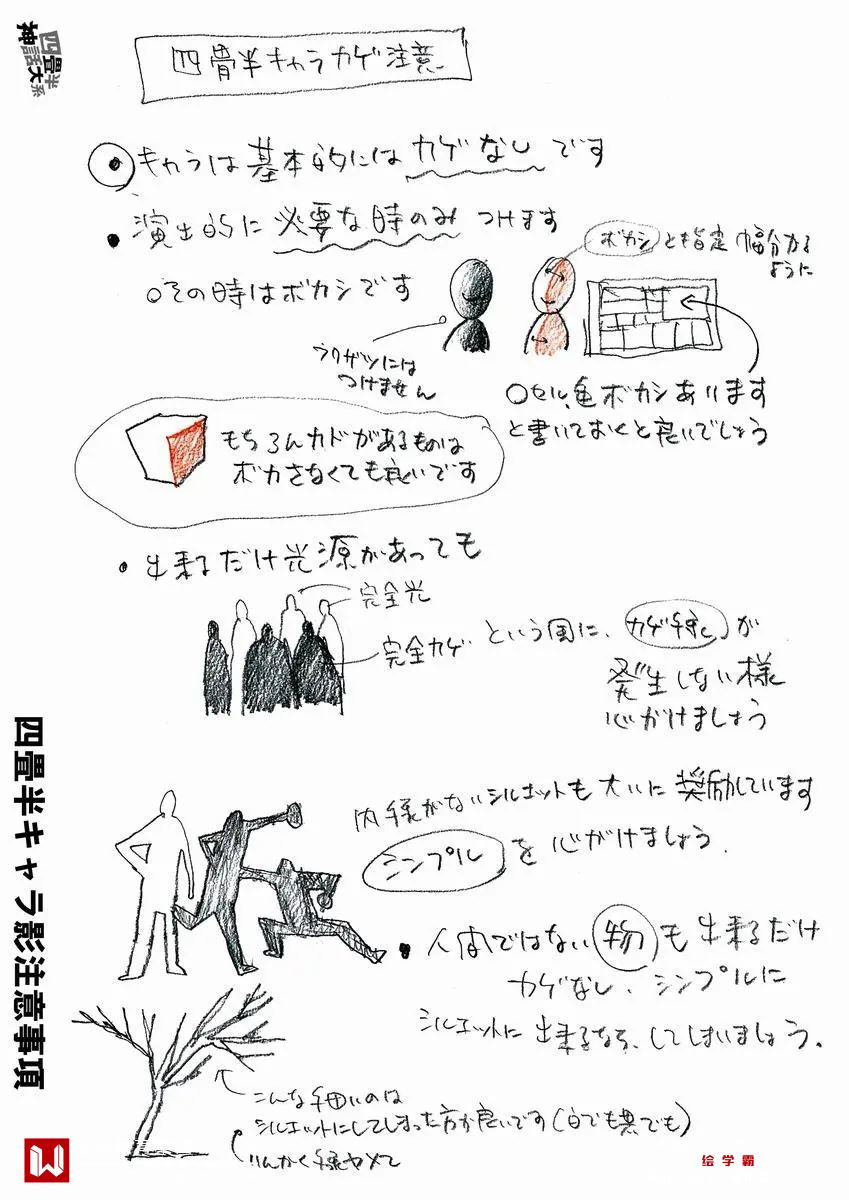 四畳半
神話大系
四畳半キャラカゲ注意
キャラは基本的にはカゲなしです
・演出的に必要な時のみつけます
○その時はボカシです
ボカシとも指定 幅分かる
ように
ラクガキには
つけません
○セル,色ボカシあります
と書いておくと良いでしょう
もちろんカドがあるものは
ボカさなくても良いです
・出来るだけ光源があっても
完全光
完全カゲ という風に、カゲ線が
発生しない様
心がけましょう
内線がないシルエットも大いに奨励しています
シンプルを心がけましょう.
・人体ではない物も出来るだけ
カゲなし、シンプルに
シルエットに出来るなら、してしまいましょう.
こんな細いのは
シルエットにしてしまった方が良いです(白でも黒でも)
りんかく線ヤメて
四畳半キャラ影注意事項
绘学霸